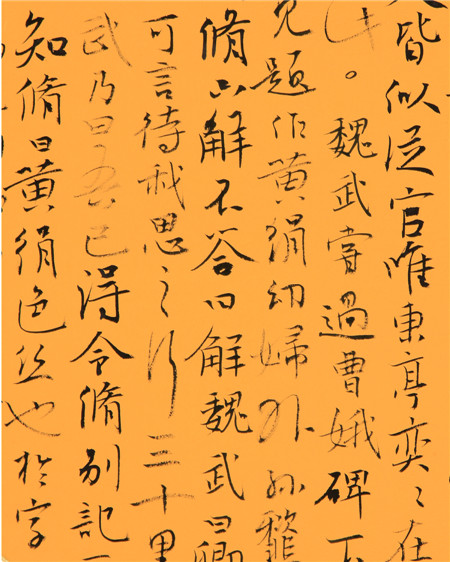 皆似從官唯東亭奕〻在
此。魏武嘗過曹娥碑下
見題作黃絹幼婦外孫齏
脩曰解不答曰解魏武曰卿
可言待我思之行三十里
武乃曰吾已得令脩別記
知脩曰黃絹色丝也於字